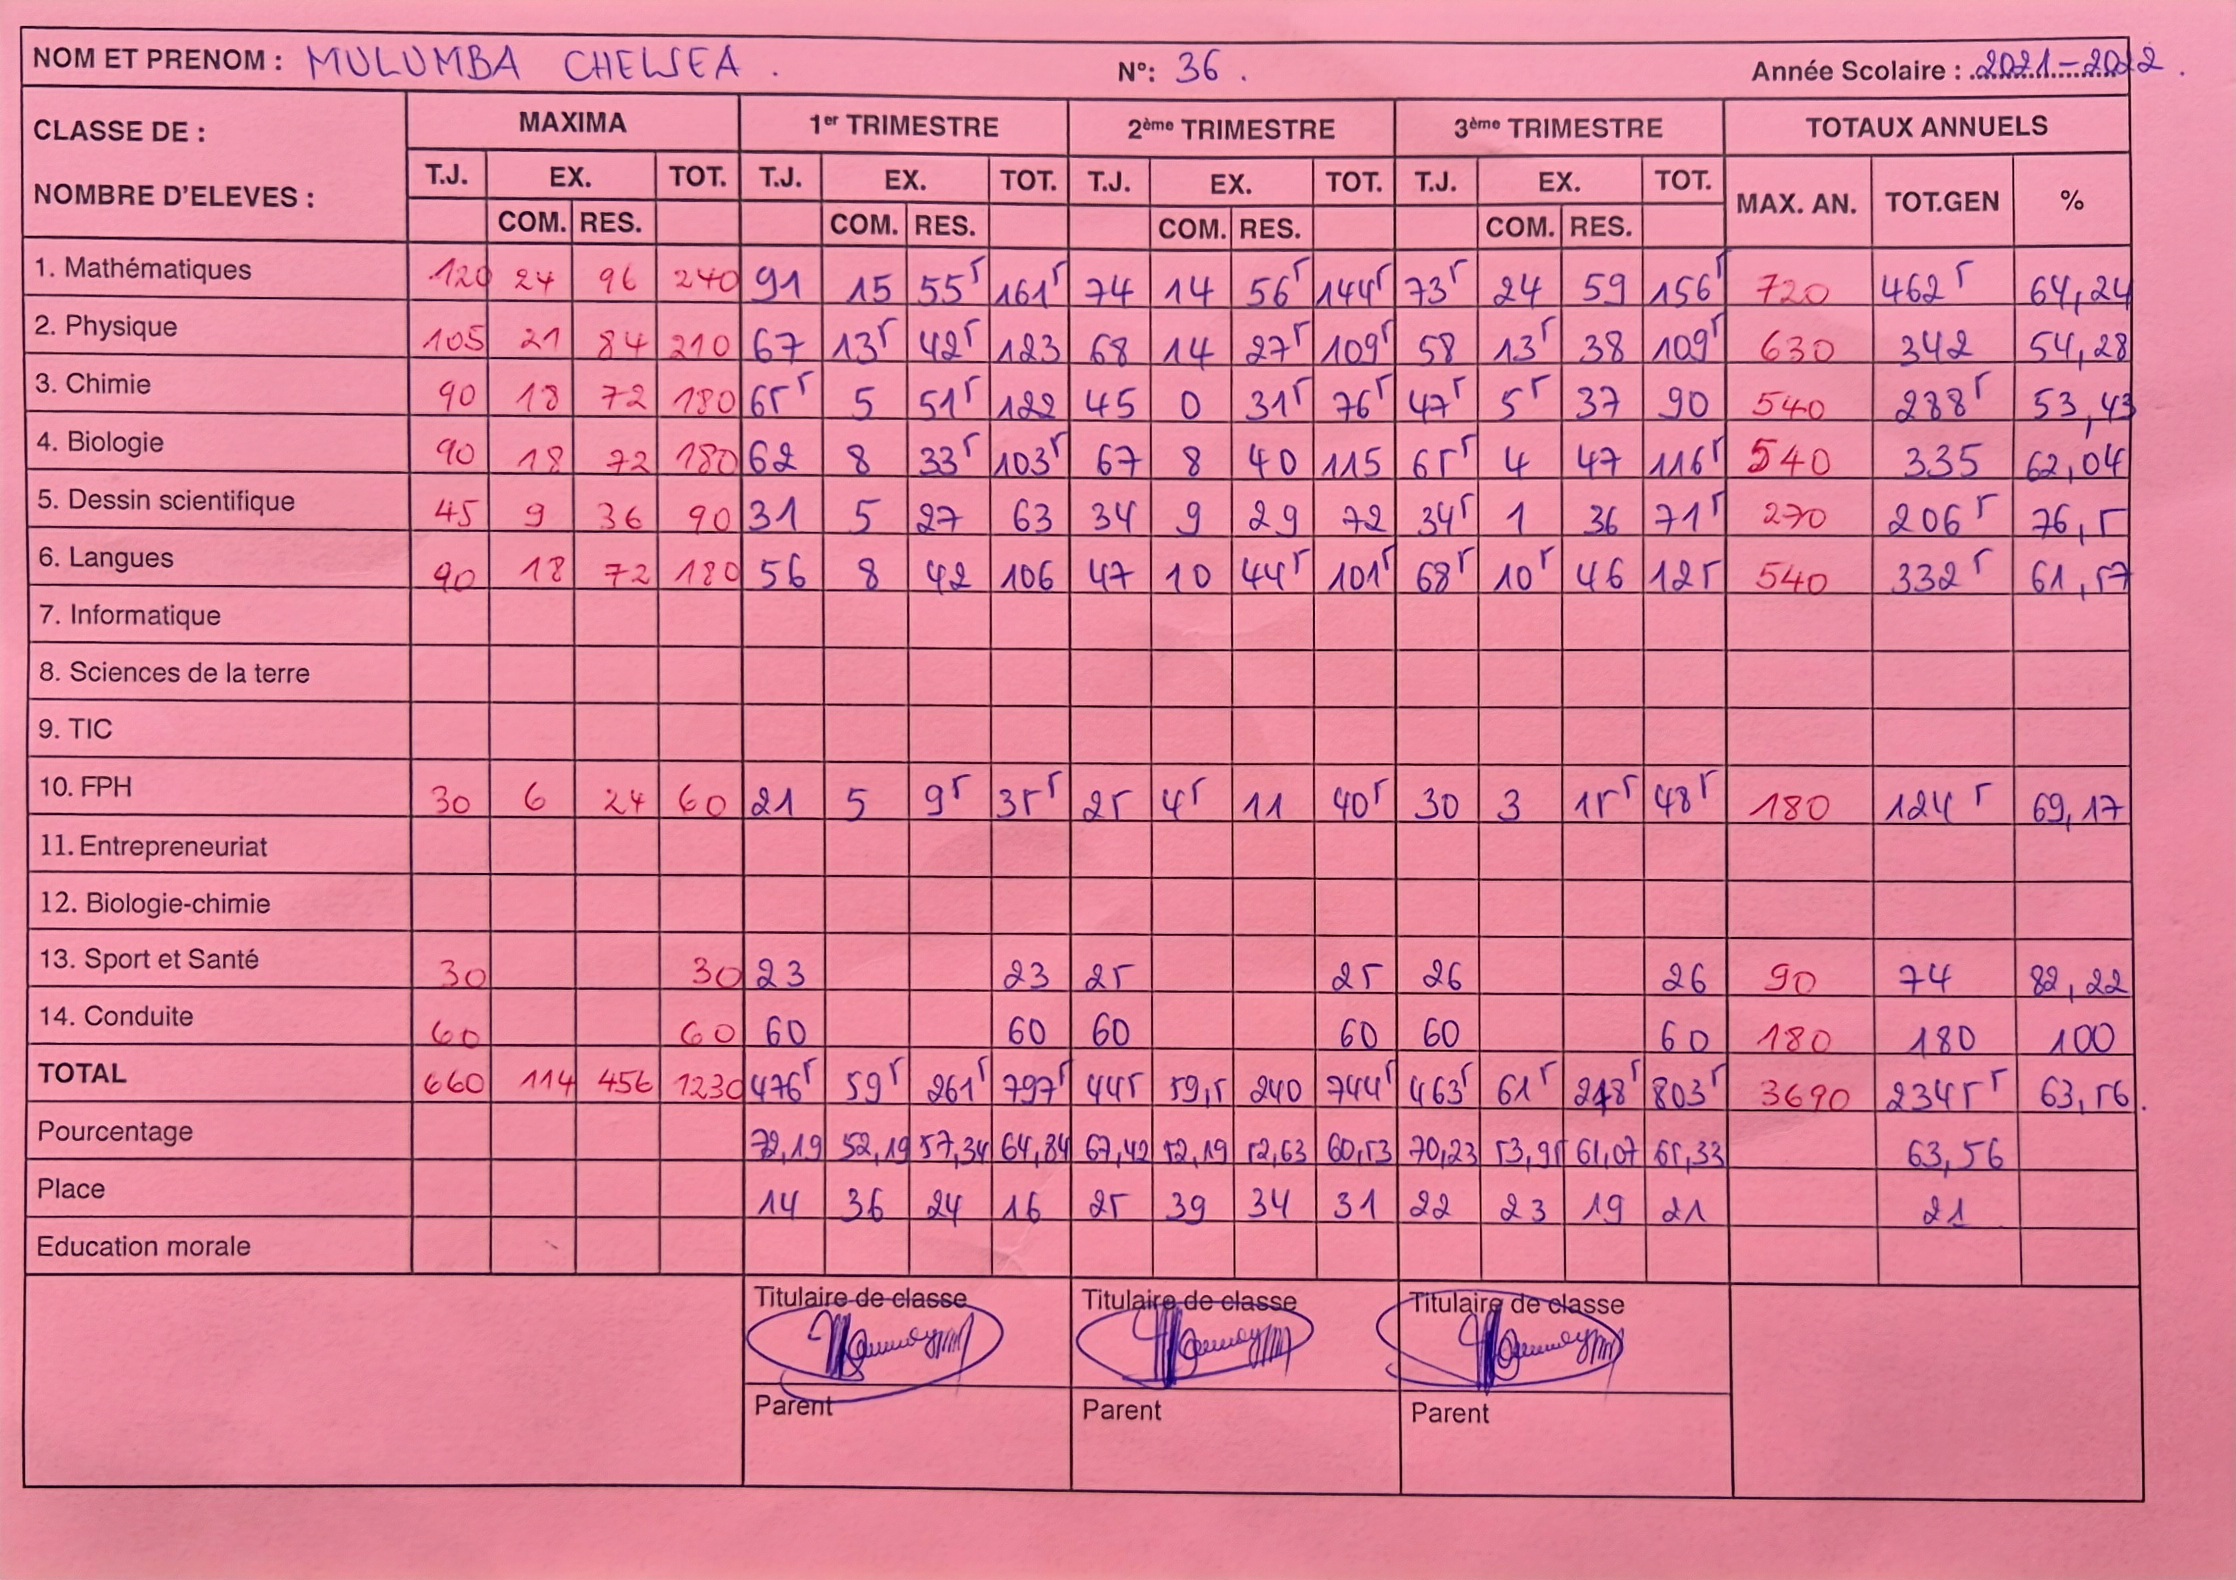 NOM ET PRENOM : MULUMBA CHELSEA . N°: 36 . Année Scolaire : 2021-2022 .
CLASSE DE : MAXIMA 1er TRIMESTRE 2ème TRIMESTRE 3ème TRIMESTRE TOTAUX ANNUELS
NOMBRE D'ELEVES : T.J. EX. TOT. T.J. EX. TOT. T.J. EX. TOT. T.J. EX. TOT. MAX. AN. TOT.GEN %
COM. RES. COM. RES. COM. RES. COM. RES.
1. Mathématiques 120 24 96 240 91 15 55⁵ 161⁵ 74 14 56⁵ 144⁵ 73⁵ 24 59 156⁵ 720 462⁵ 64,24
2. Physique 105 21 84 210 67 13⁵ 42⁵ 123 68 14 27⁵ 109⁵ 58 13⁵ 38 109⁵ 630 342 54,28
3. Chimie 90 18 72 180 65⁵ 5 51⁵ 122 45 0 31⁵ 76⁵ 47⁵ 5⁵ 37 90 540 288⁵ 53,43
4. Biologie 90 18 72 180 62 8 33⁵ 103⁵ 67 8 40 115 65⁵ 4 47 116⁵ 540 335 62,04
5. Dessin scientifique 45 9 36 90 31 5 27 63 34 9 29 72 34⁵ 1 36 71⁵ 270 206⁵ 76,5
6. Langues 90 18 72 180 56 8 42 106 47 10 44⁵ 101⁵ 68⁵ 10⁵ 46 125 540 332⁵ 61,57
7. Informatique
8. Sciences de la terre
9. TIC
10. FPH 30 6 24 60 21 5 9⁵ 35⁵ 25 4⁵ 11 40⁵ 30 3 15⁵ 48⁵ 180 124⁵ 69,17
11. Entrepreneuriat
12. Biologie-chimie
13. Sport et Santé 30 30 23 23 25 25 26 26 90 74 82,22
14. Conduite 60 60 60 60 60 60 60 60 180 180 100
TOTAL 660 114 456 1230 476⁵ 59⁵ 261⁵ 797⁵ 445 59,5 240 744⁵ 463⁵ 61⁵ 278⁵ 803⁵ 3690 2345⁵ 63,56.
Pourcentage 72,19 52,19 57,34 64,84 67,42 52,19 52,63 60,53 70,23 53,95 61,07 65,33 63,56
Place 14 36 24 16 25 39 34 31 22 23 19 21 21
Education morale
Titulaire de classe Titulaire de classe Titulaire de classe
Parent Parent Parent